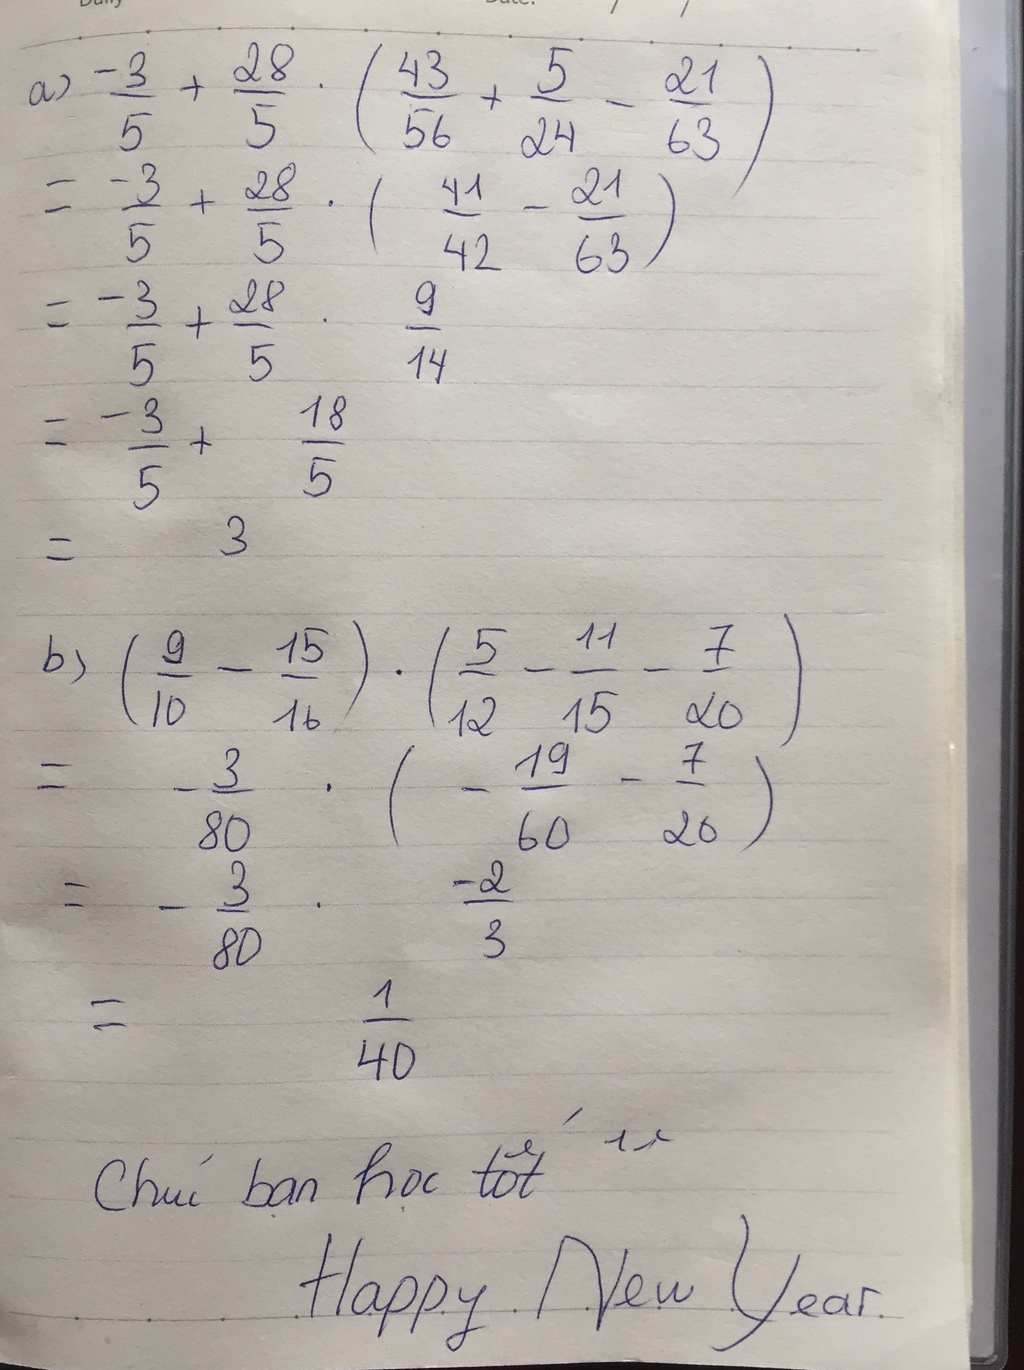 a) -3/5 + 28/5 . (43/56 + 5/24 - 21/63)
= -3/5 + 28/5 . (41/42 - 21/63)
= -3/5 + 28/5 . 9/14
= -3/5 + 18/5
= 3
b) (9/10 - 15/16) . (5/12 - 11/15 - 7/20)
= - 3/80 . (- 19/60 - 7/20)
= - 3/80 . -2/3
= 1/40
Chuć bạn học tốt
Happy New Year.